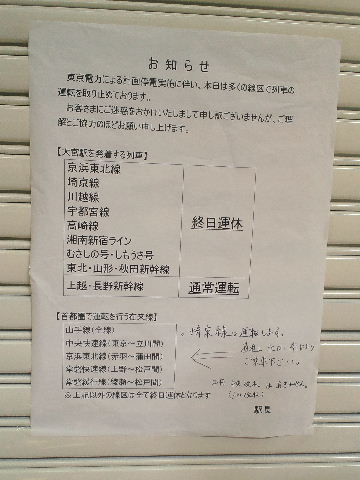 お知らせ
東京電力による計画停電実施に伴い、本日は多くの線区で列車の
運転を取り止めております。
お客さまにご迷惑をおかけいたしまして申し訳ございませんが、ご理
解とご協力のほどお願い申し上げます。
【大宮駅を発着する列車】
京浜東北線
埼京線
川越線
宇都宮線
高崎線
湘南新宿ライン
むさしの号・しもうさ号
東北・山形・秋田新幹線
終日運休
上越・長野新幹線
通常運転
【首都圏で運転を行う在来線】
山手線（全線）
中央快速線（東京～立川間）
京浜東北線（赤羽～蒲田間）
常磐快速線（上野～松戸間）
常磐緩行線（綾瀬～松戸間）
※上記以外の線区は全て終日運休となります
埼京線は運転します。
駅長